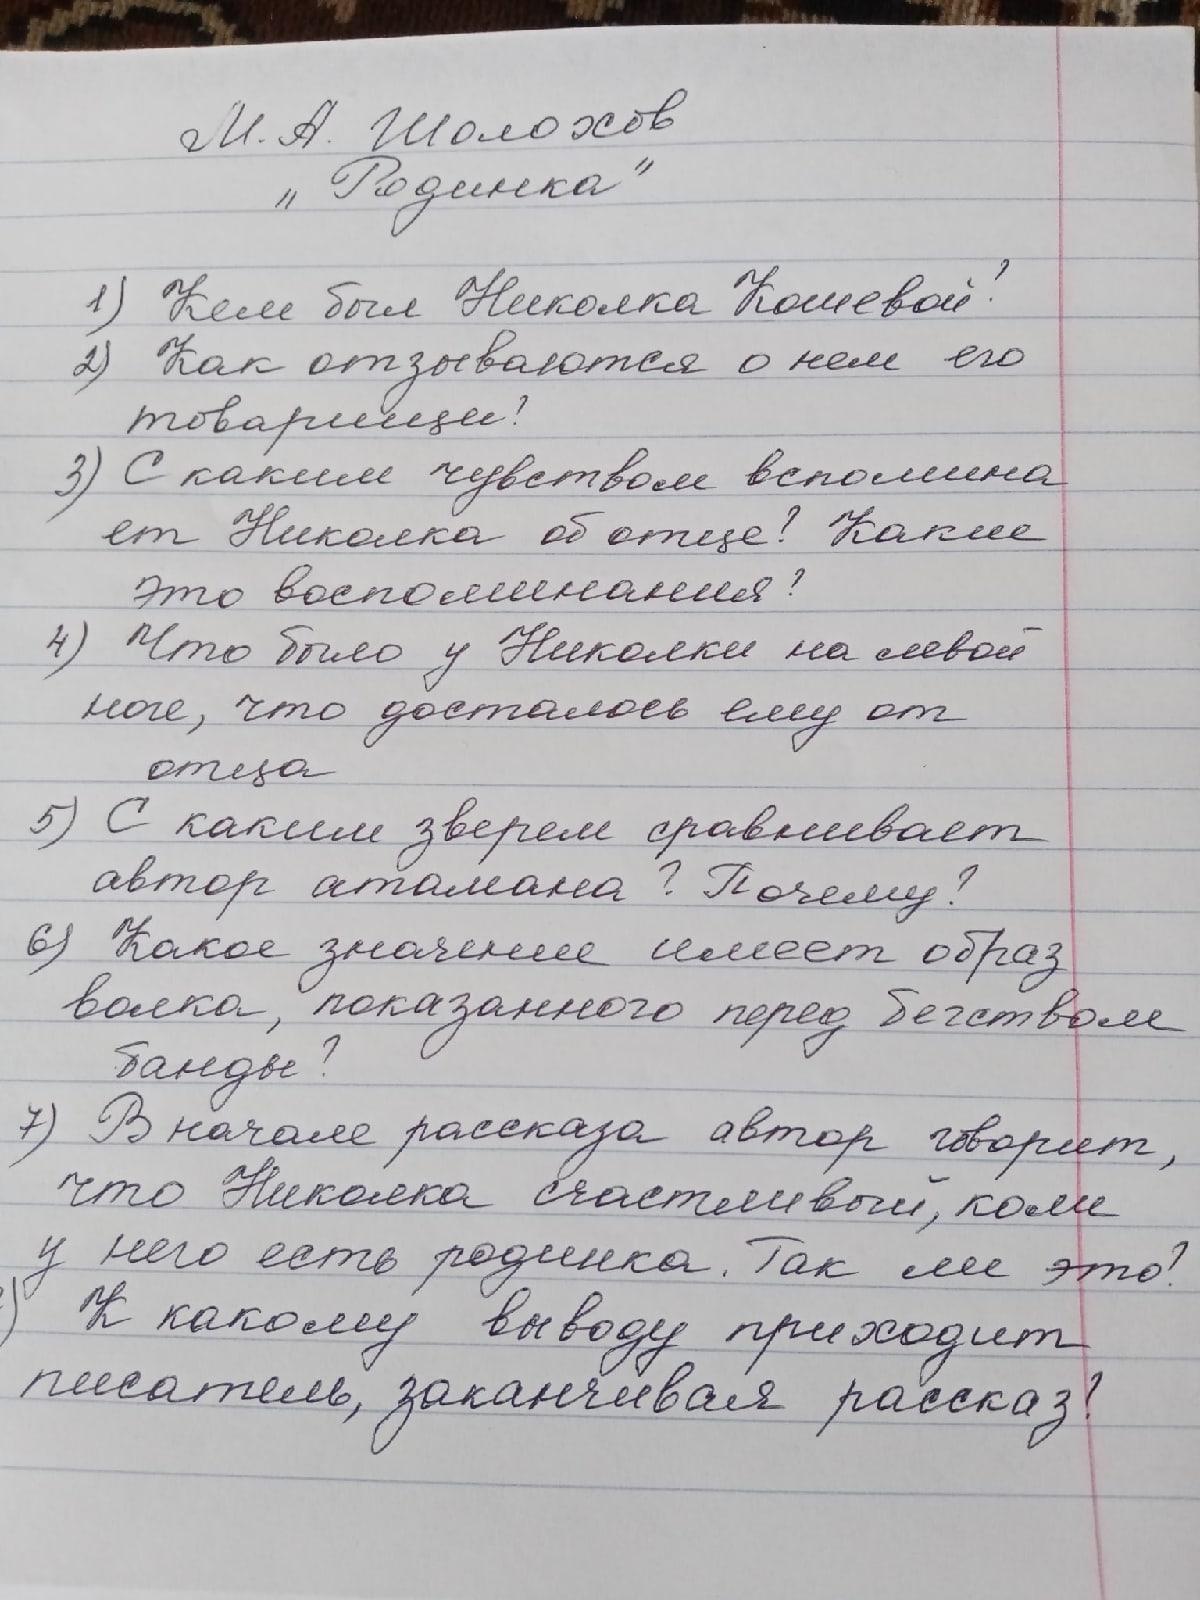 М. А. Шолохов
„Родинка"
1) Кем был Николка Кошевой?
2) Как отзываются о нем его
товарищи?
3) С каким чувством вспомина
ет Николка об отце? Какие
это воспоминания?
4) Что было у Николки на левой
ноге, что досталось ему от
отца
5) С каким зверем сравнивает
автор атамана? Почему?
6) Какое значение имеет образ
волка, показанного перед бегством
банды?
7) В начале рассказа автор говорит,
что Николка счастливый, коли
у него есть родинка. Так ли это?
) К какому выводу приходит
писатель, заканчивая рассказ?